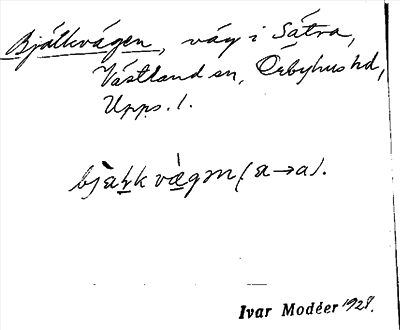 Bjälkvägen, väg i Sätra,
Västland sn, Örbyhus hd,
Upps. l.
bjàḷkvægən (a→a).
Ivar Modéer 1928.